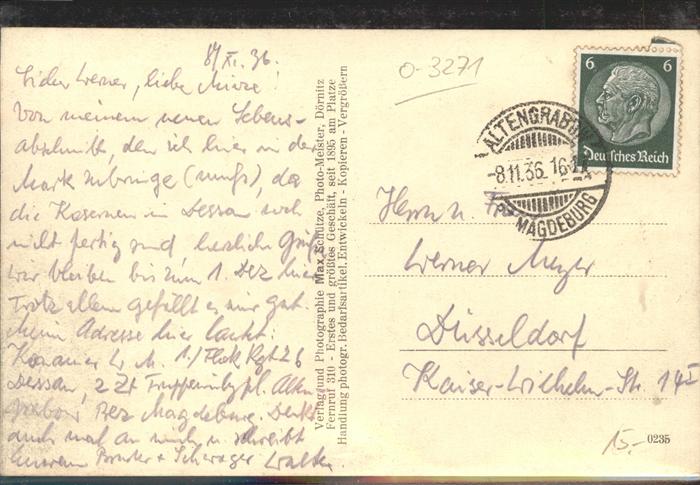 8/XI.36.
Lieber Werner, liebe Mieze!
Von meinem neuen Lebens-
abschnitt, den ich hier in der
Mark zubringe (muß), da
die Kasernen in Dessau noch
nicht fertig sind herzliche Grüße
Wir bleiben bis zum 1. Dez hier
Trotz allem gefällt es mir gut.
Meine Adresse hier lautet:
1./Flak Rgt 26
Dessau, z Zt Truppenübpl. Alten
grabow Bez Magdeburg. Denkt
auch mal an mich u. schreibt
Eurem Bruder + Schwager Walter
Verlag und Photographie Max Schütze, Photo-Meister, Dörnitz
Fernruf 310 - Erstes und größtes Geschäft, seit 1895 am Platze
Handlung photogr. Bedarfsartikel, Entwickeln - Kopieren - Vergrößern
O-3271
6 6
Deutsches Reich
ALTENGRABOW
-8.11.36. 16-17
MAGDEBURG
Herrn u. Frau
Werner Meyer
Düsseldorf
Kaiser-Wilhelm-Str.
15.-
0235